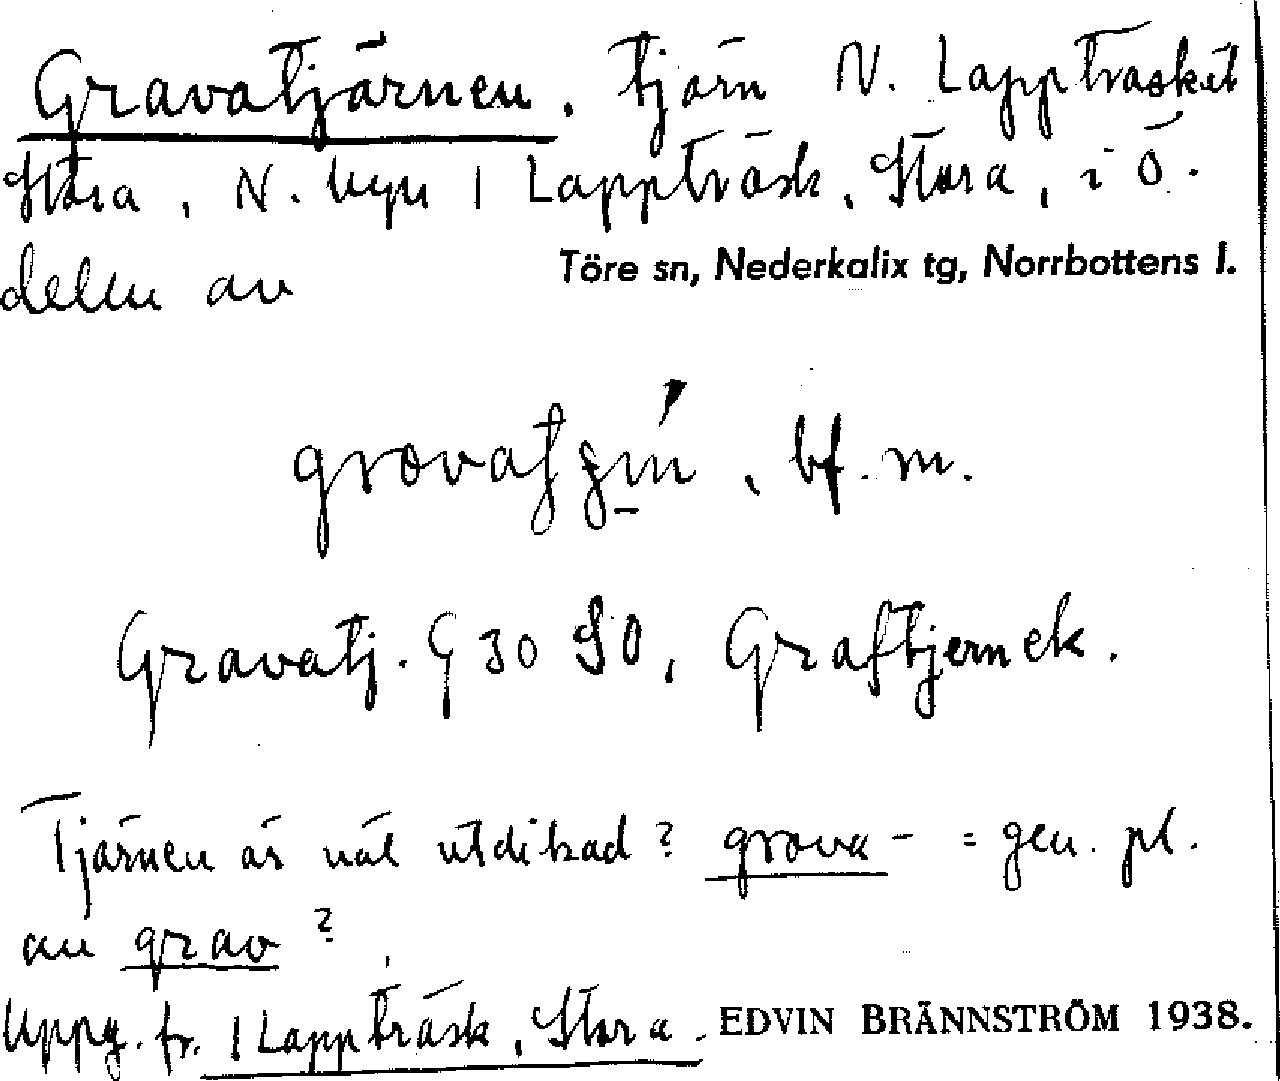 Gravatjärnen. tjärn N. Lappträsket
Stora, N. byn 1 Lappträsk, Stora, i ö.
delen av
Töre sn, Nederkalix tg, Norrbottens l.
bf. m.
Gravatj. G 30 SO, Graftjern ek.
Tjärnen är väl utdikad? grova- = gen. pl.
av grav?
Uppg. fr. 1 Lappträsk, Stora. EDVIN BRÄNNSTRÖM 1938.